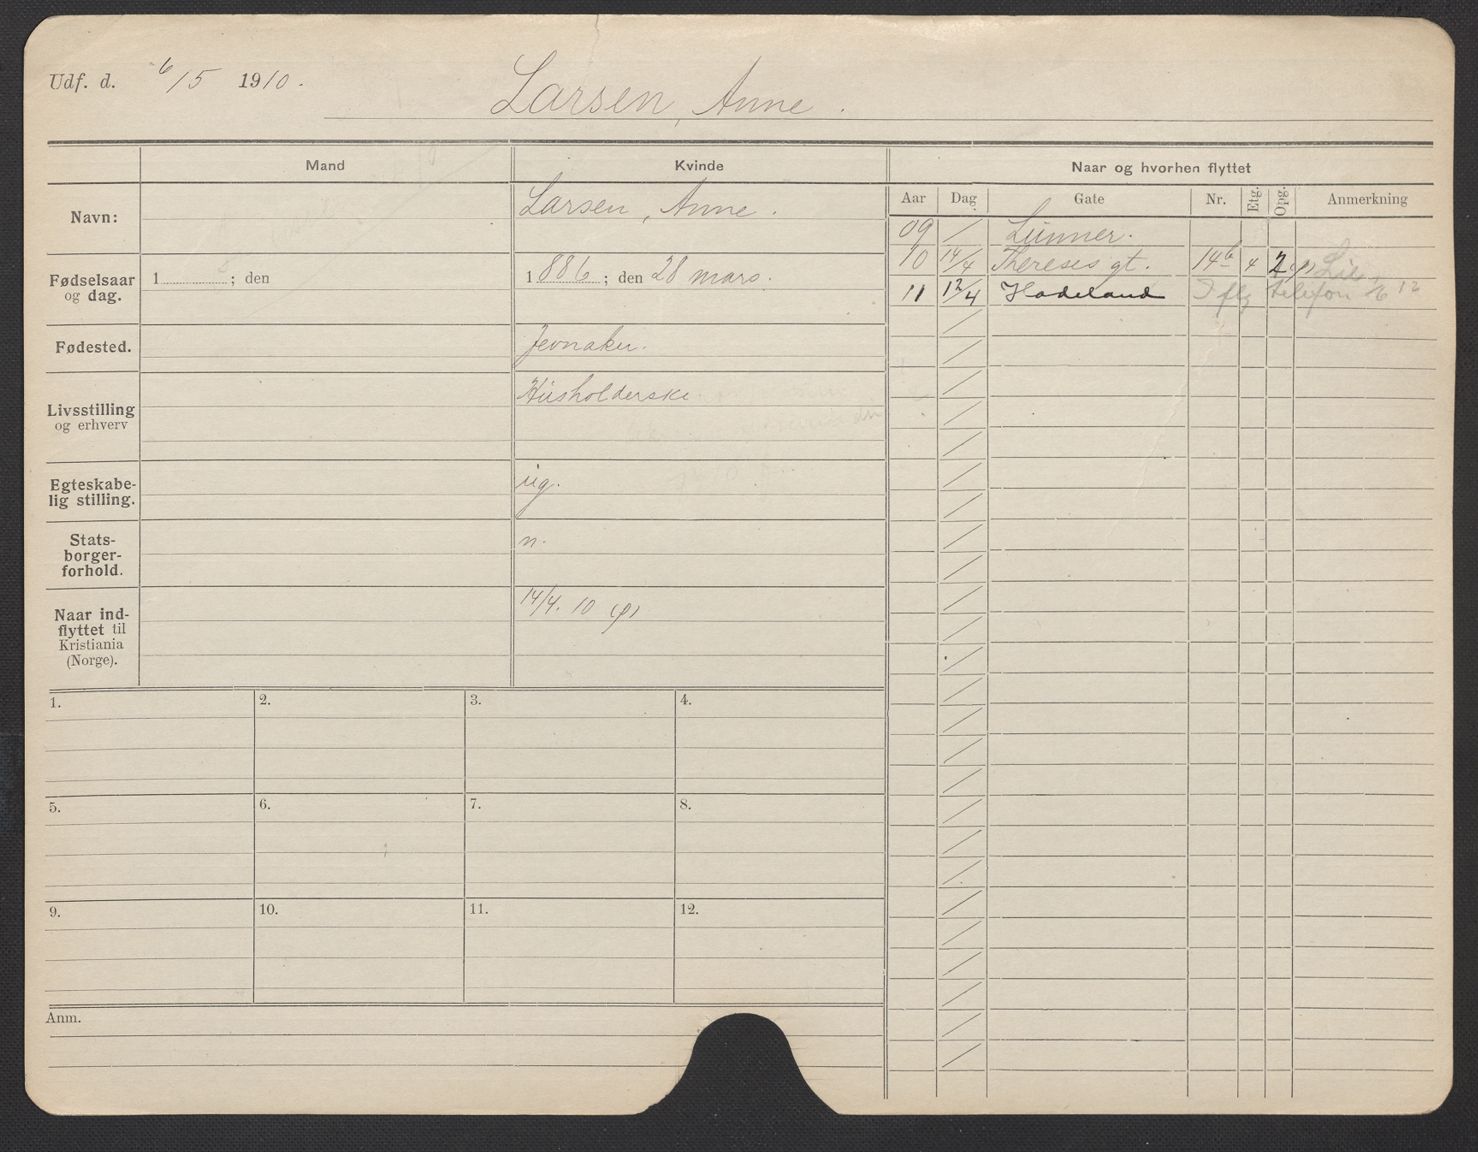 Udf. d. 6/5 1910.
Larsen, Anne.
Mand
Kvinde
Naar og hvorhen flyttet
Aar Dag Gate Nr. Etg. Opg. Anmerkning
Navn:
Larsen, Anne.
Fødselsaar
og dag.
1 ; den
1886; den 28 mars.
Fødested.
Jevnaker.
Livsstilling
og erhverv
Husholderske
Egteskabe-
lig stilling.
ug.
Stats-
borger-
forhold.
n.
Naar ind-
flyttet til
Kristiania
(Norge).
14/4. 10
09 / Lunner.
10 14/4 Thereses gt. 14b 4 2 Lie
11 12/4 Hadeland telefon
1.
2.
3.
4.
5.
6.
7.
8.
9.
10.
11.
12.
Anm.